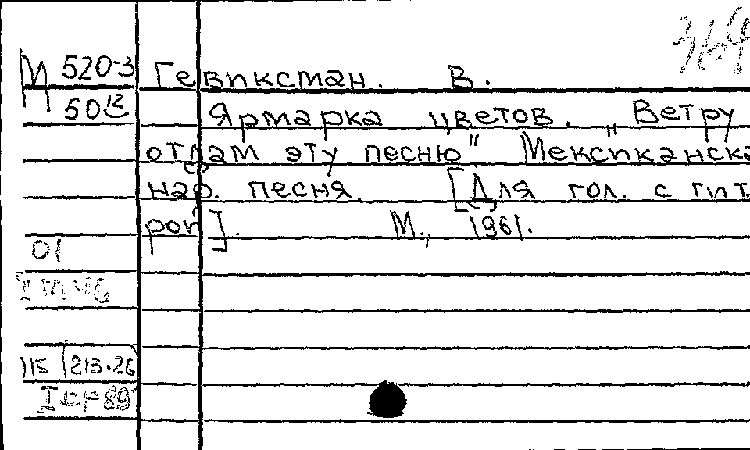 364
М 520-3 Гевиксман. В.
50 12 Ярмарка цветов. „Ветру
отдам эту песню" Мексиканска
нар. песня. [Для гол. с гит.
рой]. М., 1961.
01
115 213.26